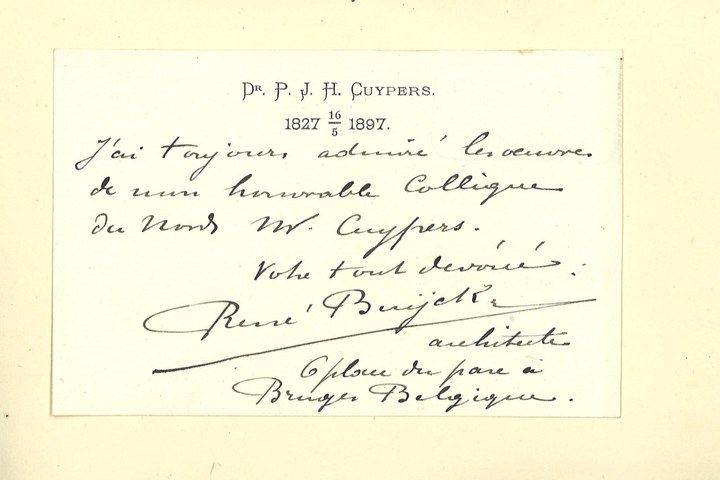 Dr. P. J. H. Cuypers.
1827 16/5 1897.
J'ai toujours admiré les oeuvres
de mon honorable Collègue
du Nord Mr. Cuypers.
Votre tout dévoué :
René Buyck
architecte
6 place du parc à
Bruges Belgique.